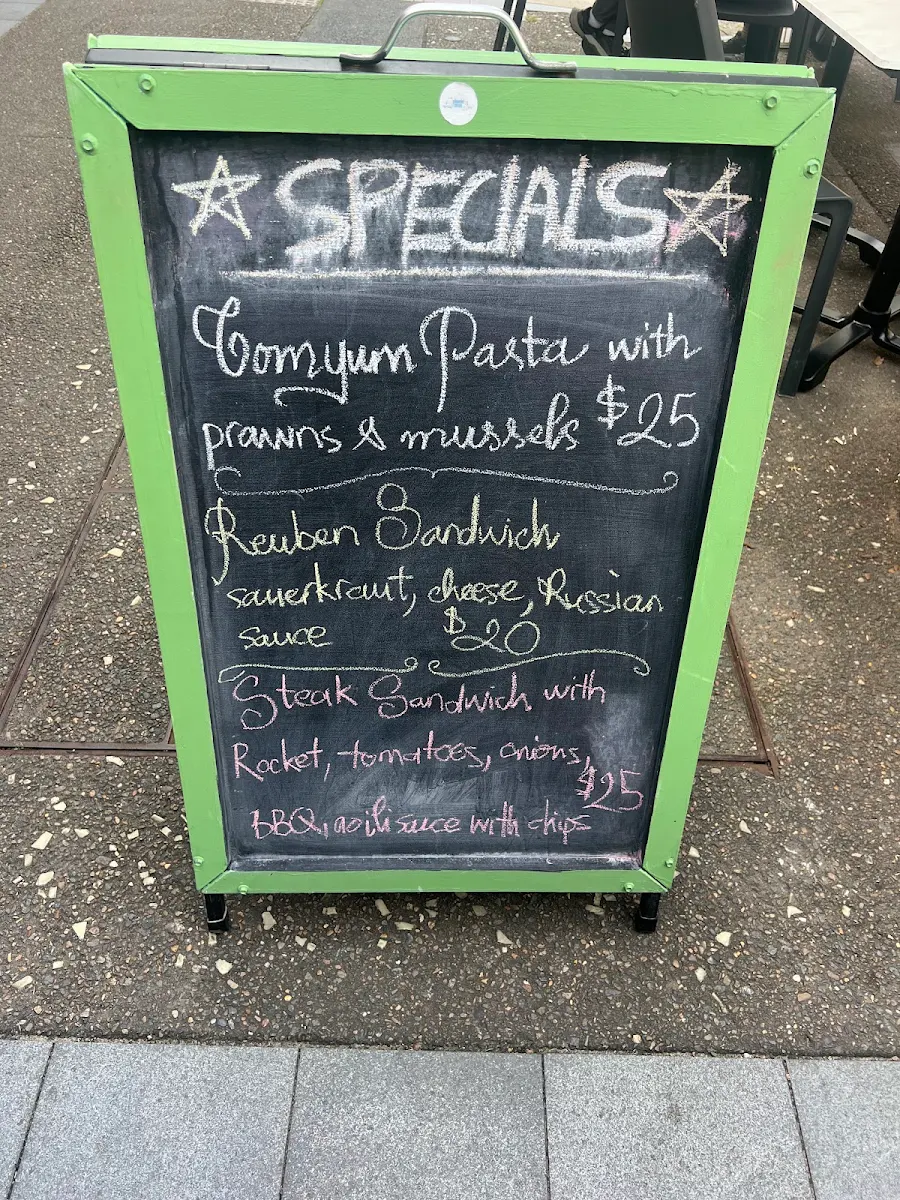 SPECIALS
Tomyum Pasta with
prawns & mussels $25
Reuben Sandwich
sauerkraut, cheese, Russian
sauce $20
Steak Sandwich with
Rocket, tomatoes, onions,
$25
BBQ, aoili sauce with chips